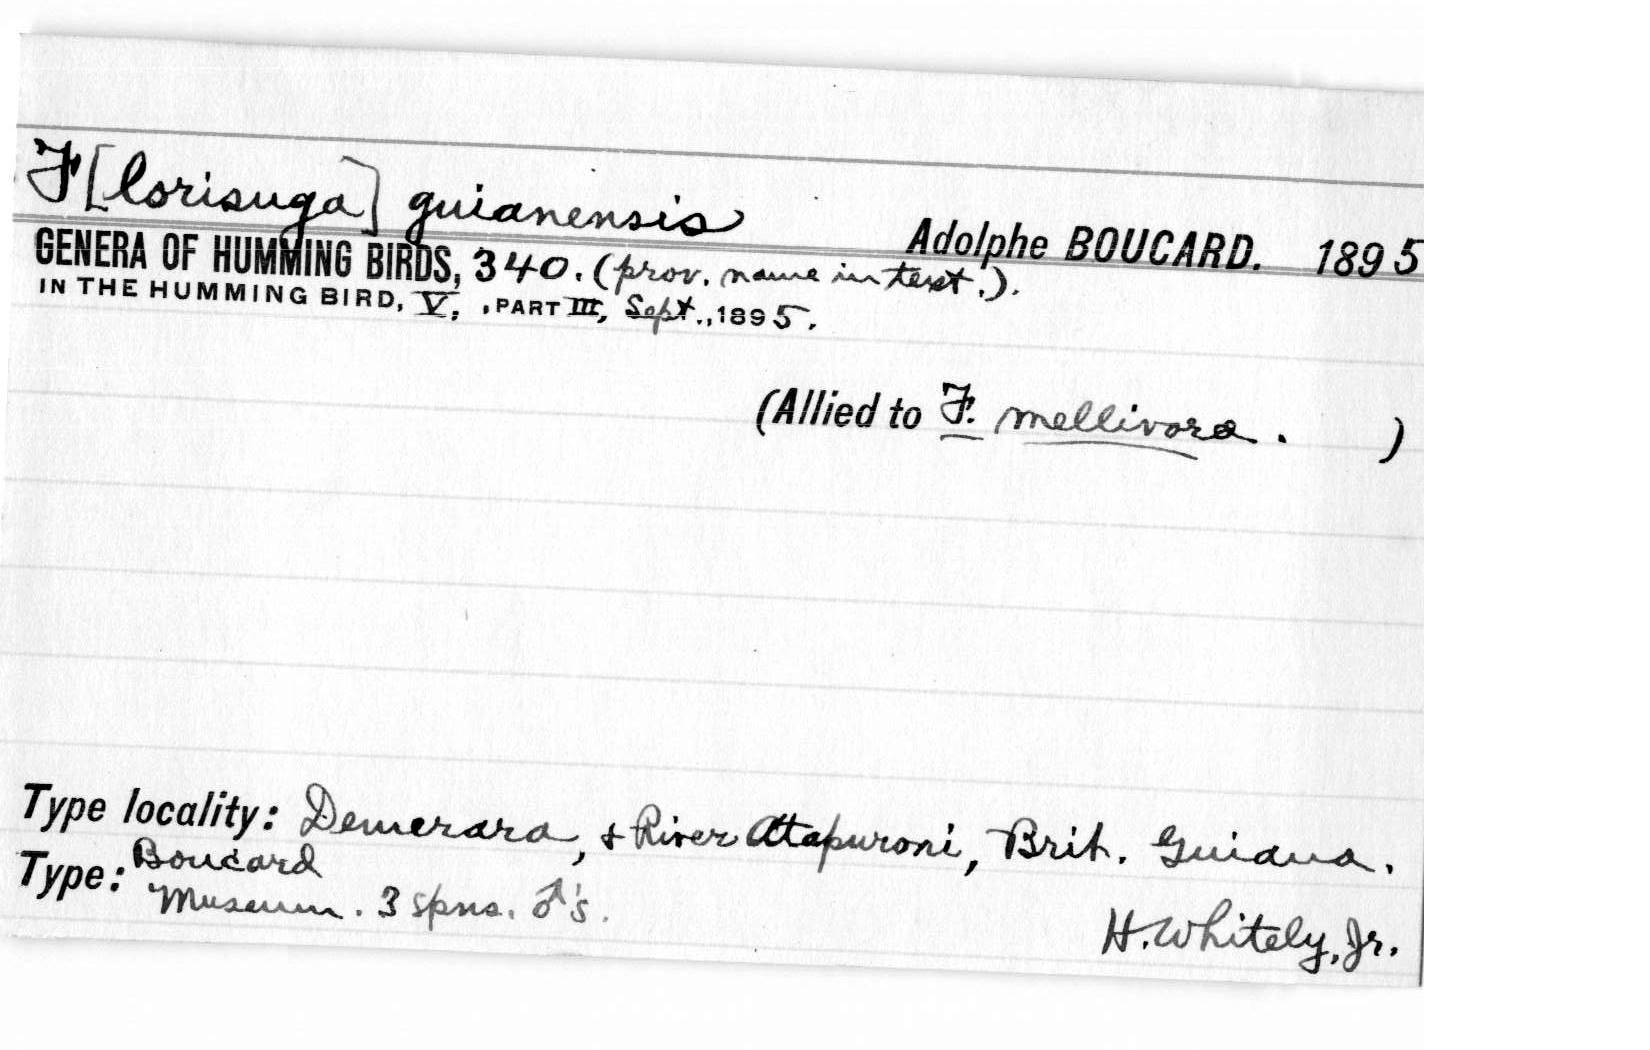 F[lorisuga] guianensis
Adolphe BOUCARD. 1895
GENERA OF HUMMING BIRDS, 340. (prov. name in text.).
IN THE HUMMING BIRD, V, , PART III, Sept., 1895.
(Allied to F. mellivora. )
Type locality: Demerara, & River Atapuroni, Brit. Guiana.
Type: Boucard
Museum. 3 spns. ♂'s.
H. Whitely, Jr.